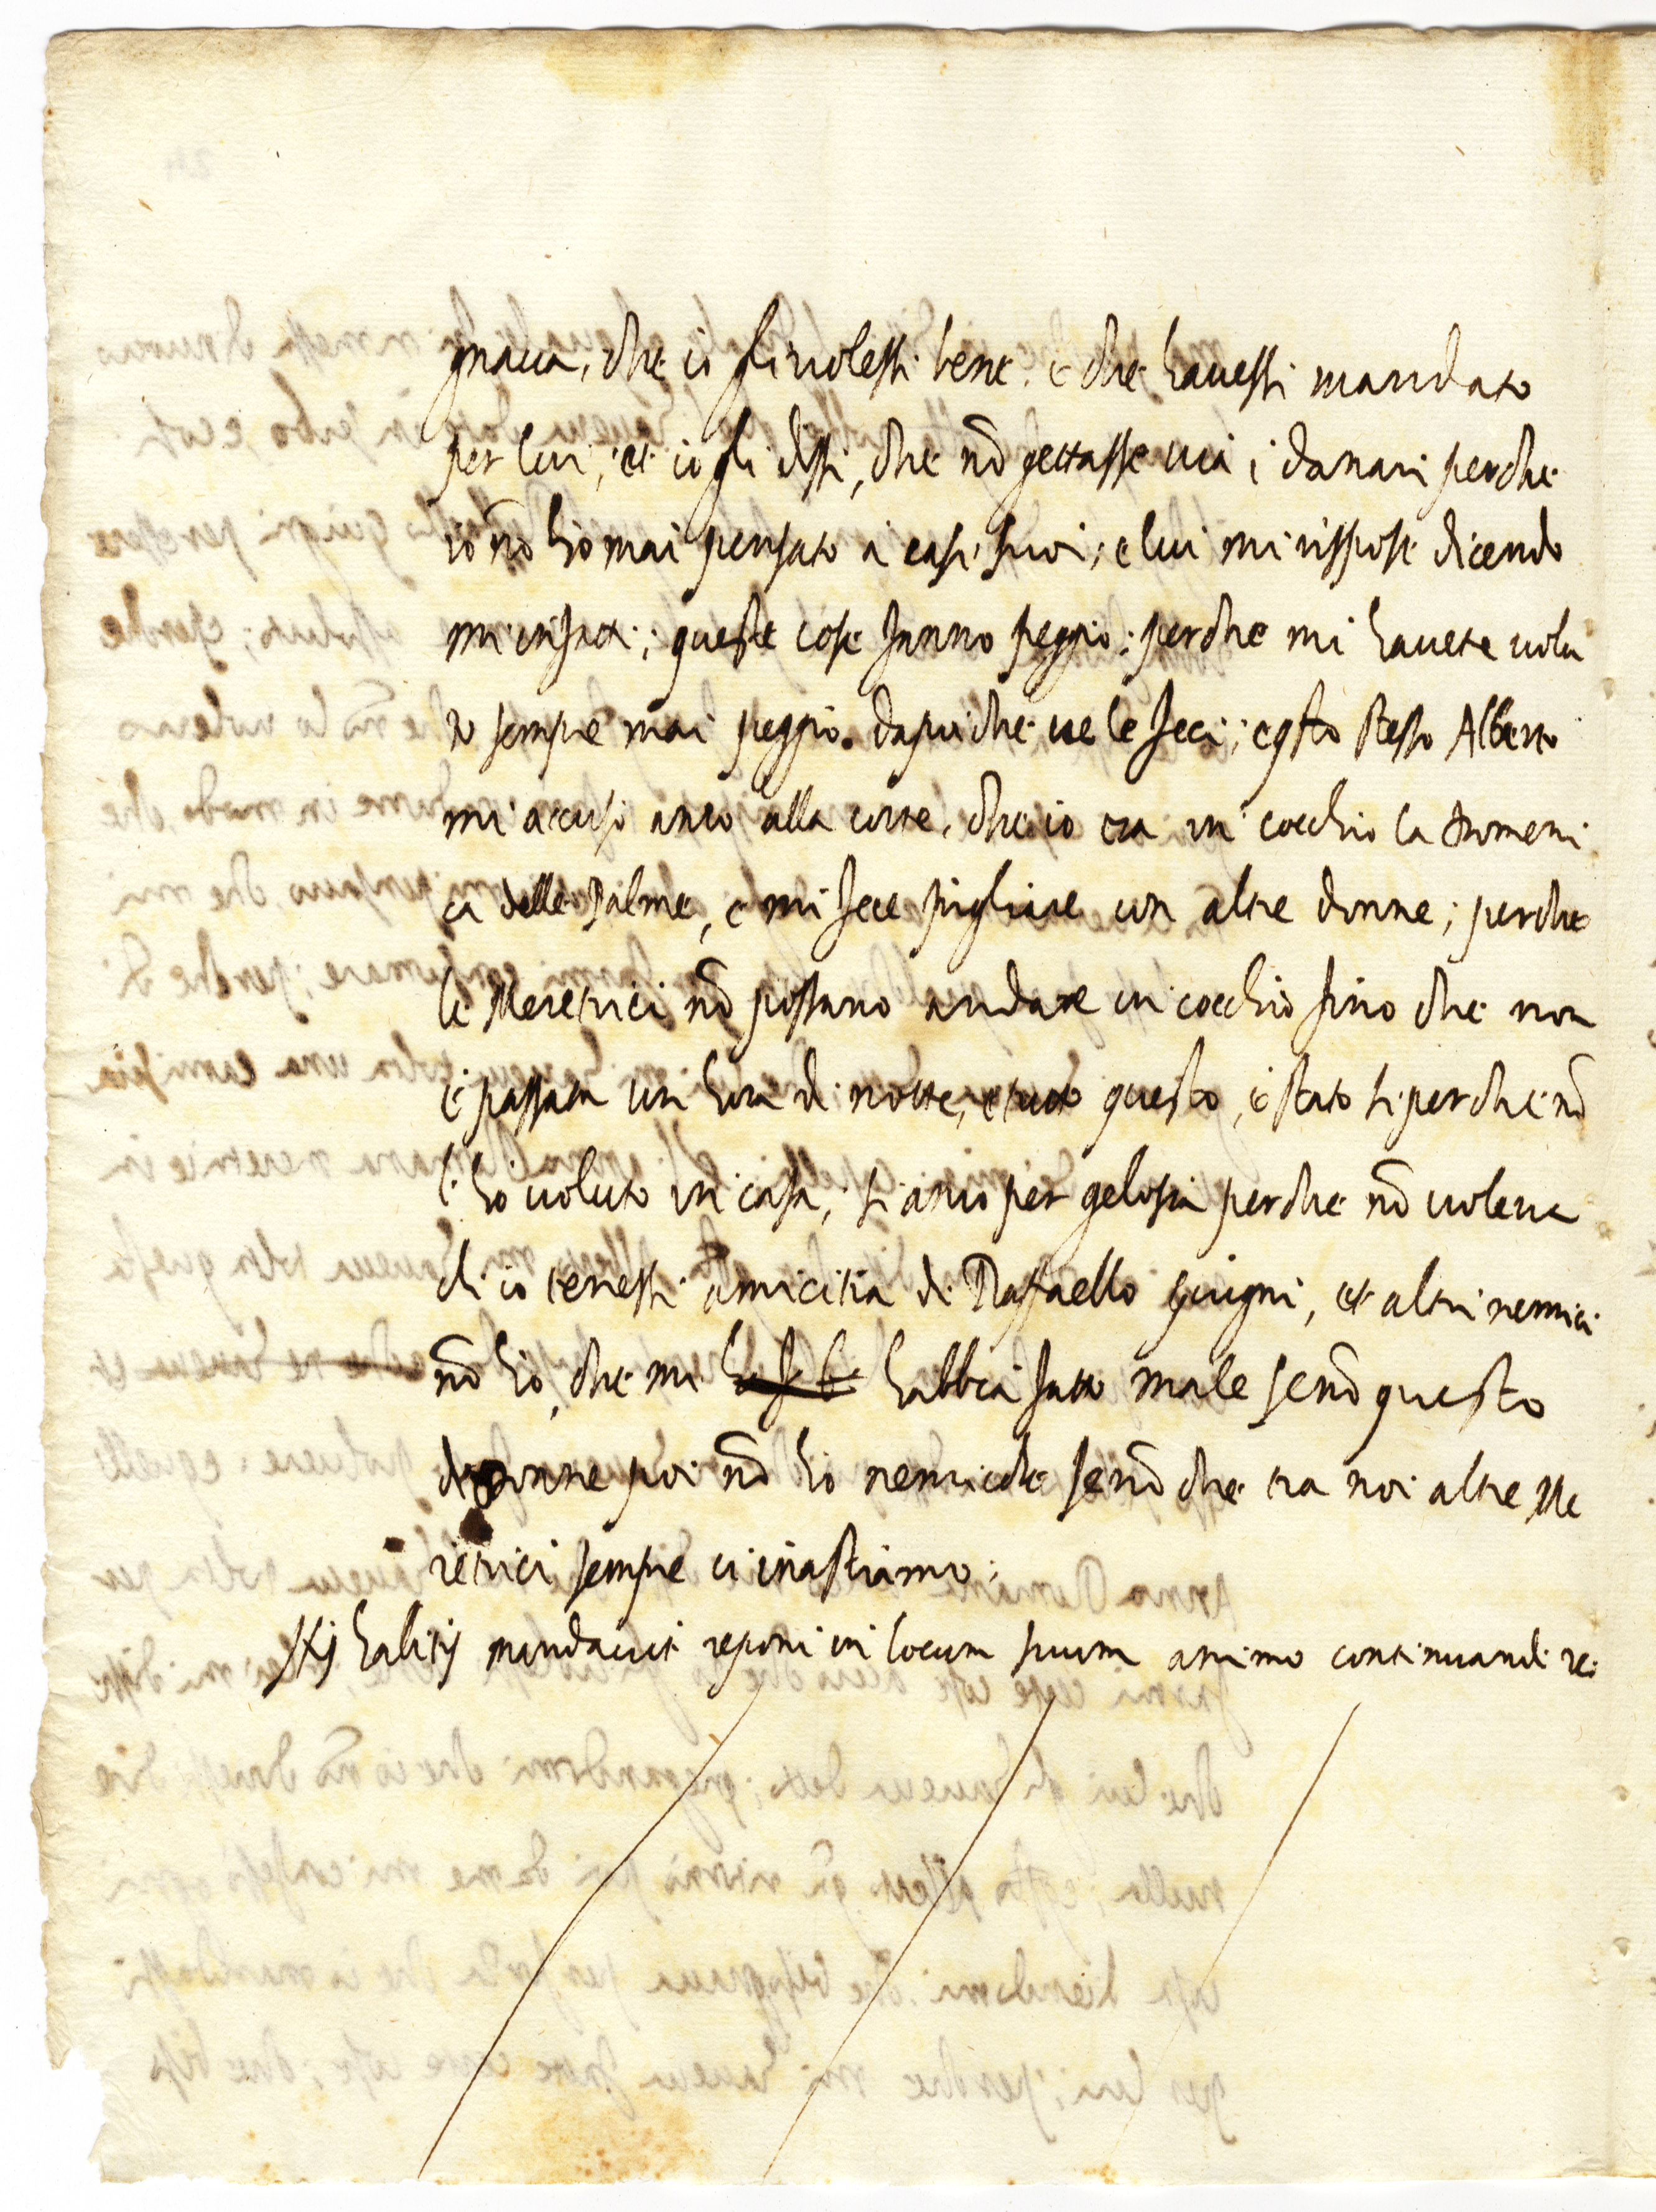 gnaua, che io gli uolessi bene. e che hauessi mandato
per lui, et io gli dissi, che nō gettasse uia i danari perche
io nō hò mai pensato a casi suoi; e lui mi rispose dicendo
mi in fatti; queste cose fanno peggio: perche mi hauete uolu
to sempre mai peggio. dapoi che ue le feci; e qsto stesso Alberto
mi accusò anco alla corte, che io era in cocchio la Domeni
ca delle Palme, e mi fece pigliare con altre donne; perche
le Meretrici nō possano andare in cocchio fino che non
è passata un hora di notte, e tutto questo, è stato si perche nō
l'hò uoluto in casa, si anco per gelosia perche nō uoleua
ch'io tenessi amicitia di Raffaello giugni, et altri nemici
nō hò, che mi habbia fatto male se nō questo
di donne poi nō hò nemiche se nō che tra noi altre Me
retrici sempre ci inastiamo.
His habitis mandauit reponi in locum suum animo continuandi &c: